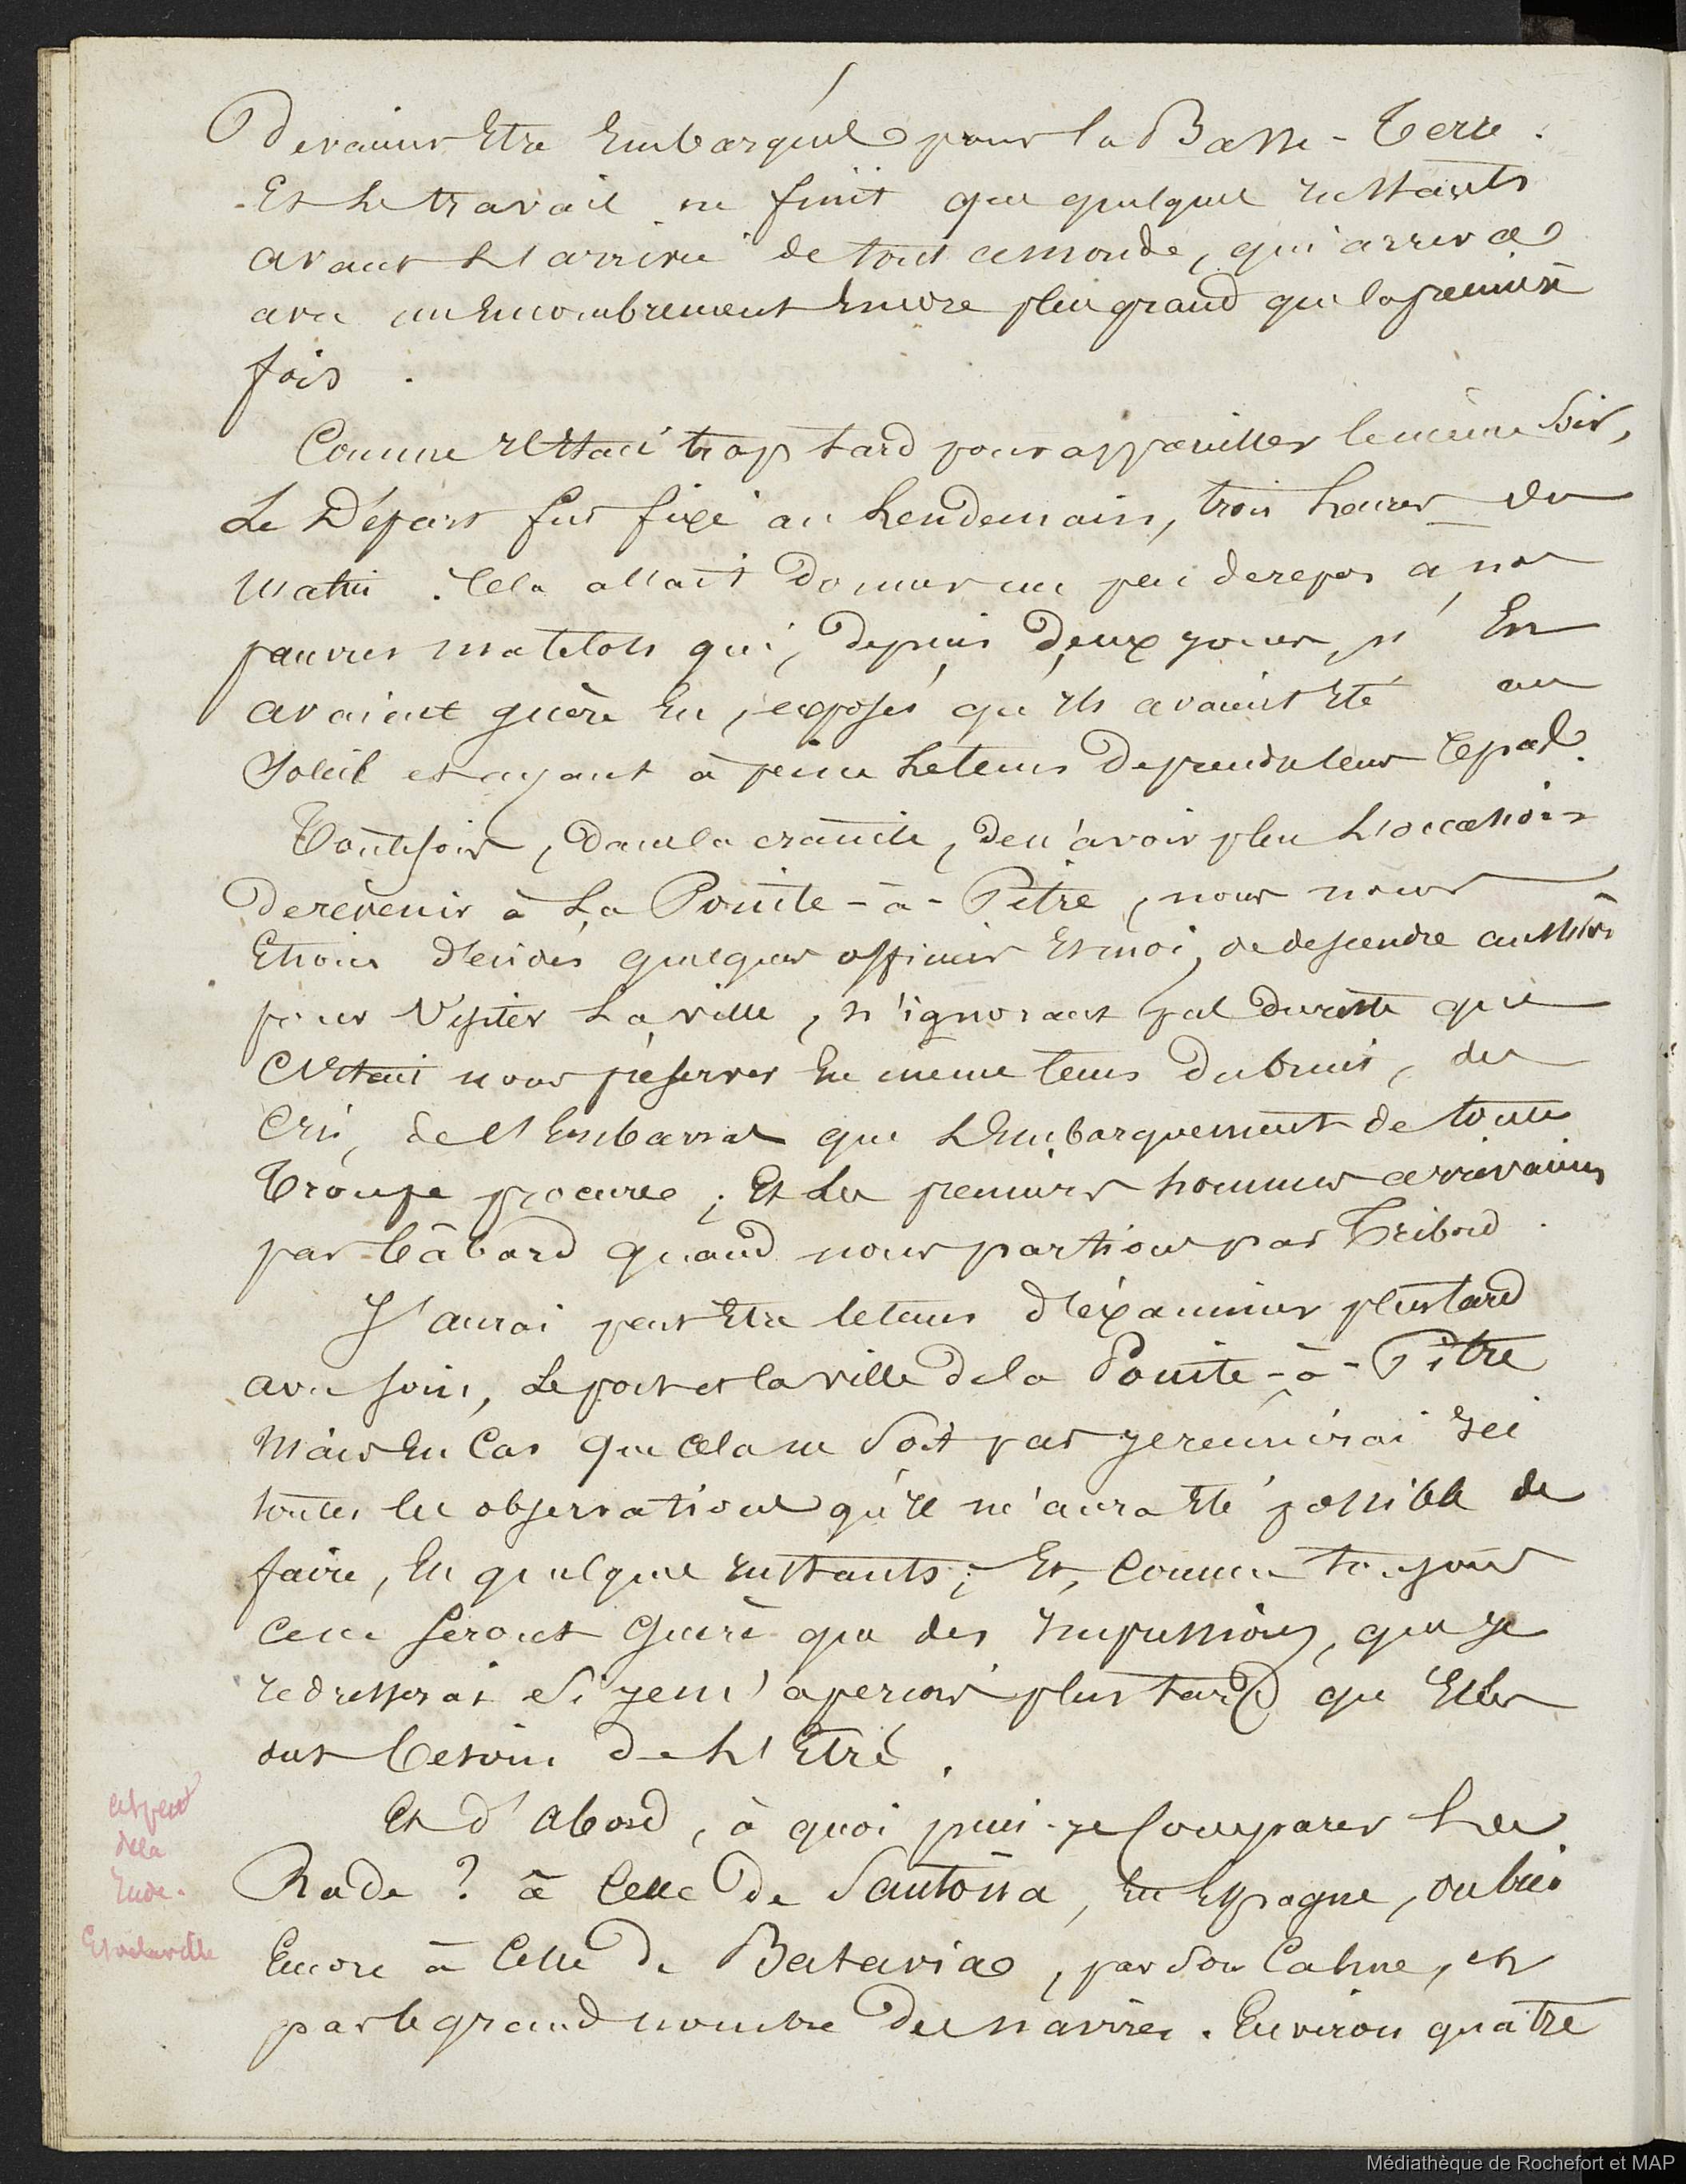 Devaient Etre Embarqués pour la Basse-Terre.
Et le travail ne finit que quelques instants
avant l'arrivée de tout ce monde, qui arriva
avec un Encombrement Encore plus grand que la première
fois.
Comme il Etait trop tard pour appareiller le même Soir,
Le Départ fut fixé au Lendemain, trois heures du
Matin. Cela allait Donner un peu de repos à nos
pauvres matelots qui, Depuis Deux jours, n'En
avaient guère Eu, exposés qu'ils avaient Eté au
Soleil et ayant à peine le tems De prendre leur repas.
Toutefois, Dans la crainte, de n'avoir plus L'occasion
De revenir à La Pointe-à-Pitre, nous nous
Etions décidés quelques officiers Et moi, de descendre aussitôt
pour Visiter La ville, n'ignorant pas Du reste que
C'Etait nous préserver En même tems Du bruit, des
Cris, de l'Embarras que L'Embarquement de toute
Troupe procure; Et Les premiers hommes arrivaient
par bâbord quand nous partions par Tribord.
J'aurai peut Etre le tems d'éxaminer plus tard
avec soin, Le port et la ville De la Pointe-à-Pitre
Mais En Cas que Cela ne Soit pas je réunirai Ici
toutes les observations qu'il m'aura Eté possible de
faire, En quelques instants; Et, Comme toujours
ce ne Seront Guère que des Impressions, que Je
redresserai Si je m'aperçois plus tard que Elles
ont besoin de L'Etre.
Et d'abord, à quoi puis-je Comparer La
Rade? à Celle De Santona, En Espagne, ou bien
Encore à Celle De Batavia, par Son Calme, et
par le grand nombre Des navires. Environ quatre
aspect
de la
Rade.
Et de la ville
Médiathèque de Rochefort et MAP